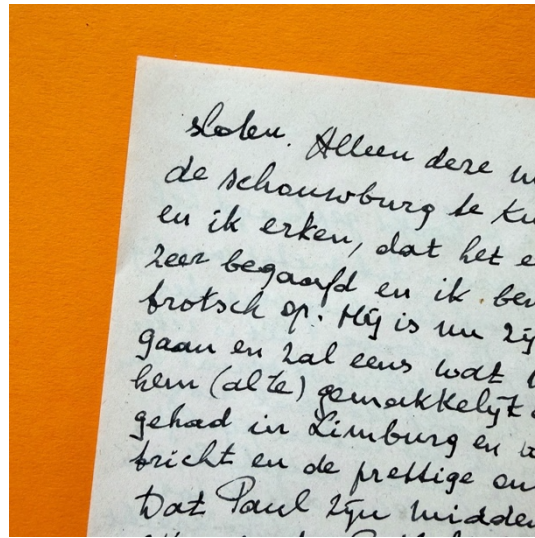 sloten. Alleen deze
de schouwburg te
en ik erken, dat het
zeer begaafd en ik ben
trotsch op. Hij is nu zij
gaan en zal eens wat
hem (al te) gemakkelijk
gehad in Limburg en
tricht en de prettige
Dat Paul zijn midden